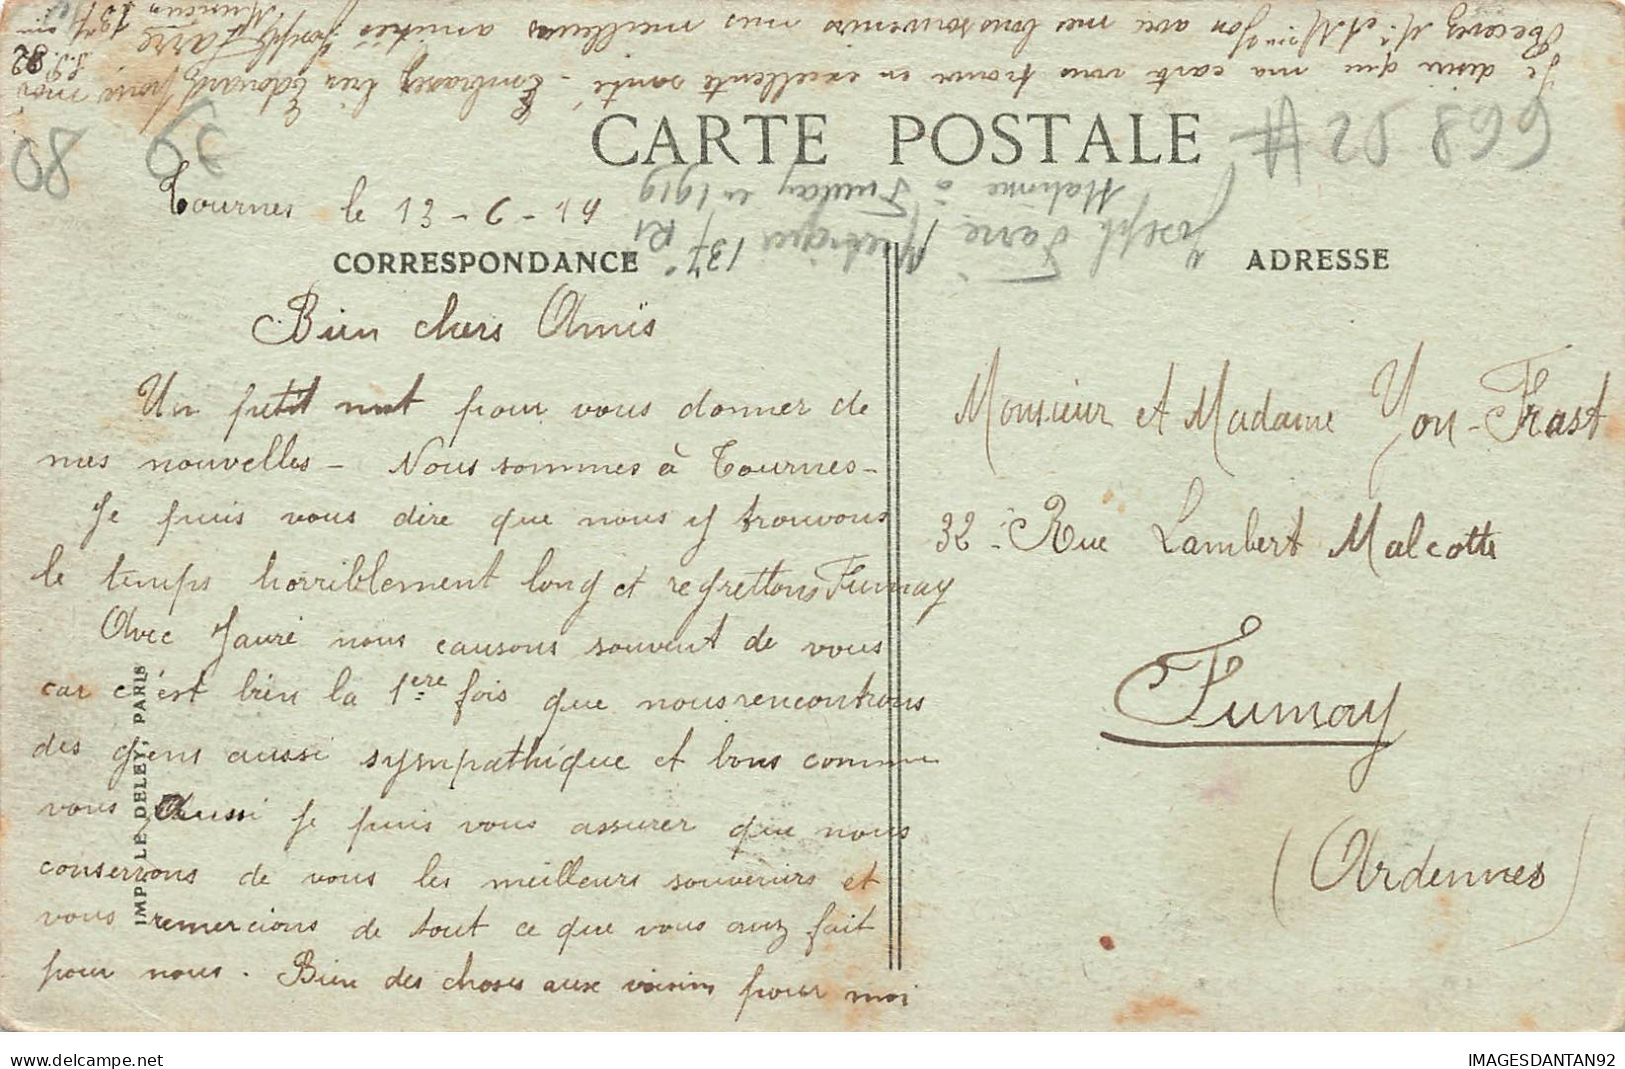 Je désire que ma carte vous trouve en excellente santé. Embrassez bien Edouard pour moi
Recevez Mr et Mme Yon avec mes bons souvenirs mes meilleures amitiés Joseph Farre
Musicien
137
S.P.
92
CARTE POSTALE
668 52 #
80
Joseph Farre Musicien 137e RI
Stationné à Fumay en 1919
Tournes le 13-6-19
CORRESPONDANCE
ADRESSE
Bien chers Amis
Un petit mot pour vous donner de
mes nouvelles - Nous sommes à Tournes -
Je puis vous dire que nous y trouvons
le temps horriblement long et regrettons Fumay
Avec Jauré nous causons souvent de vous
car c'est bien la 1ère fois que nous rencontrons
des gens aussi sympathique et bons comme
vous Aussi je puis vous assurer que nous
conservons de vous les meilleurs souvenirs et
vous remercions de tout ce que vous avez fait
pour nous. Bien des choses aux voisins pour moi
Monsieur et Madame Yon-Frast
32 - Rue Lambert Malcotte
Fumay
(Ardennes)
IMP. LE DELEY, PARIS
delcampe.net
IMAGESDANTAN92